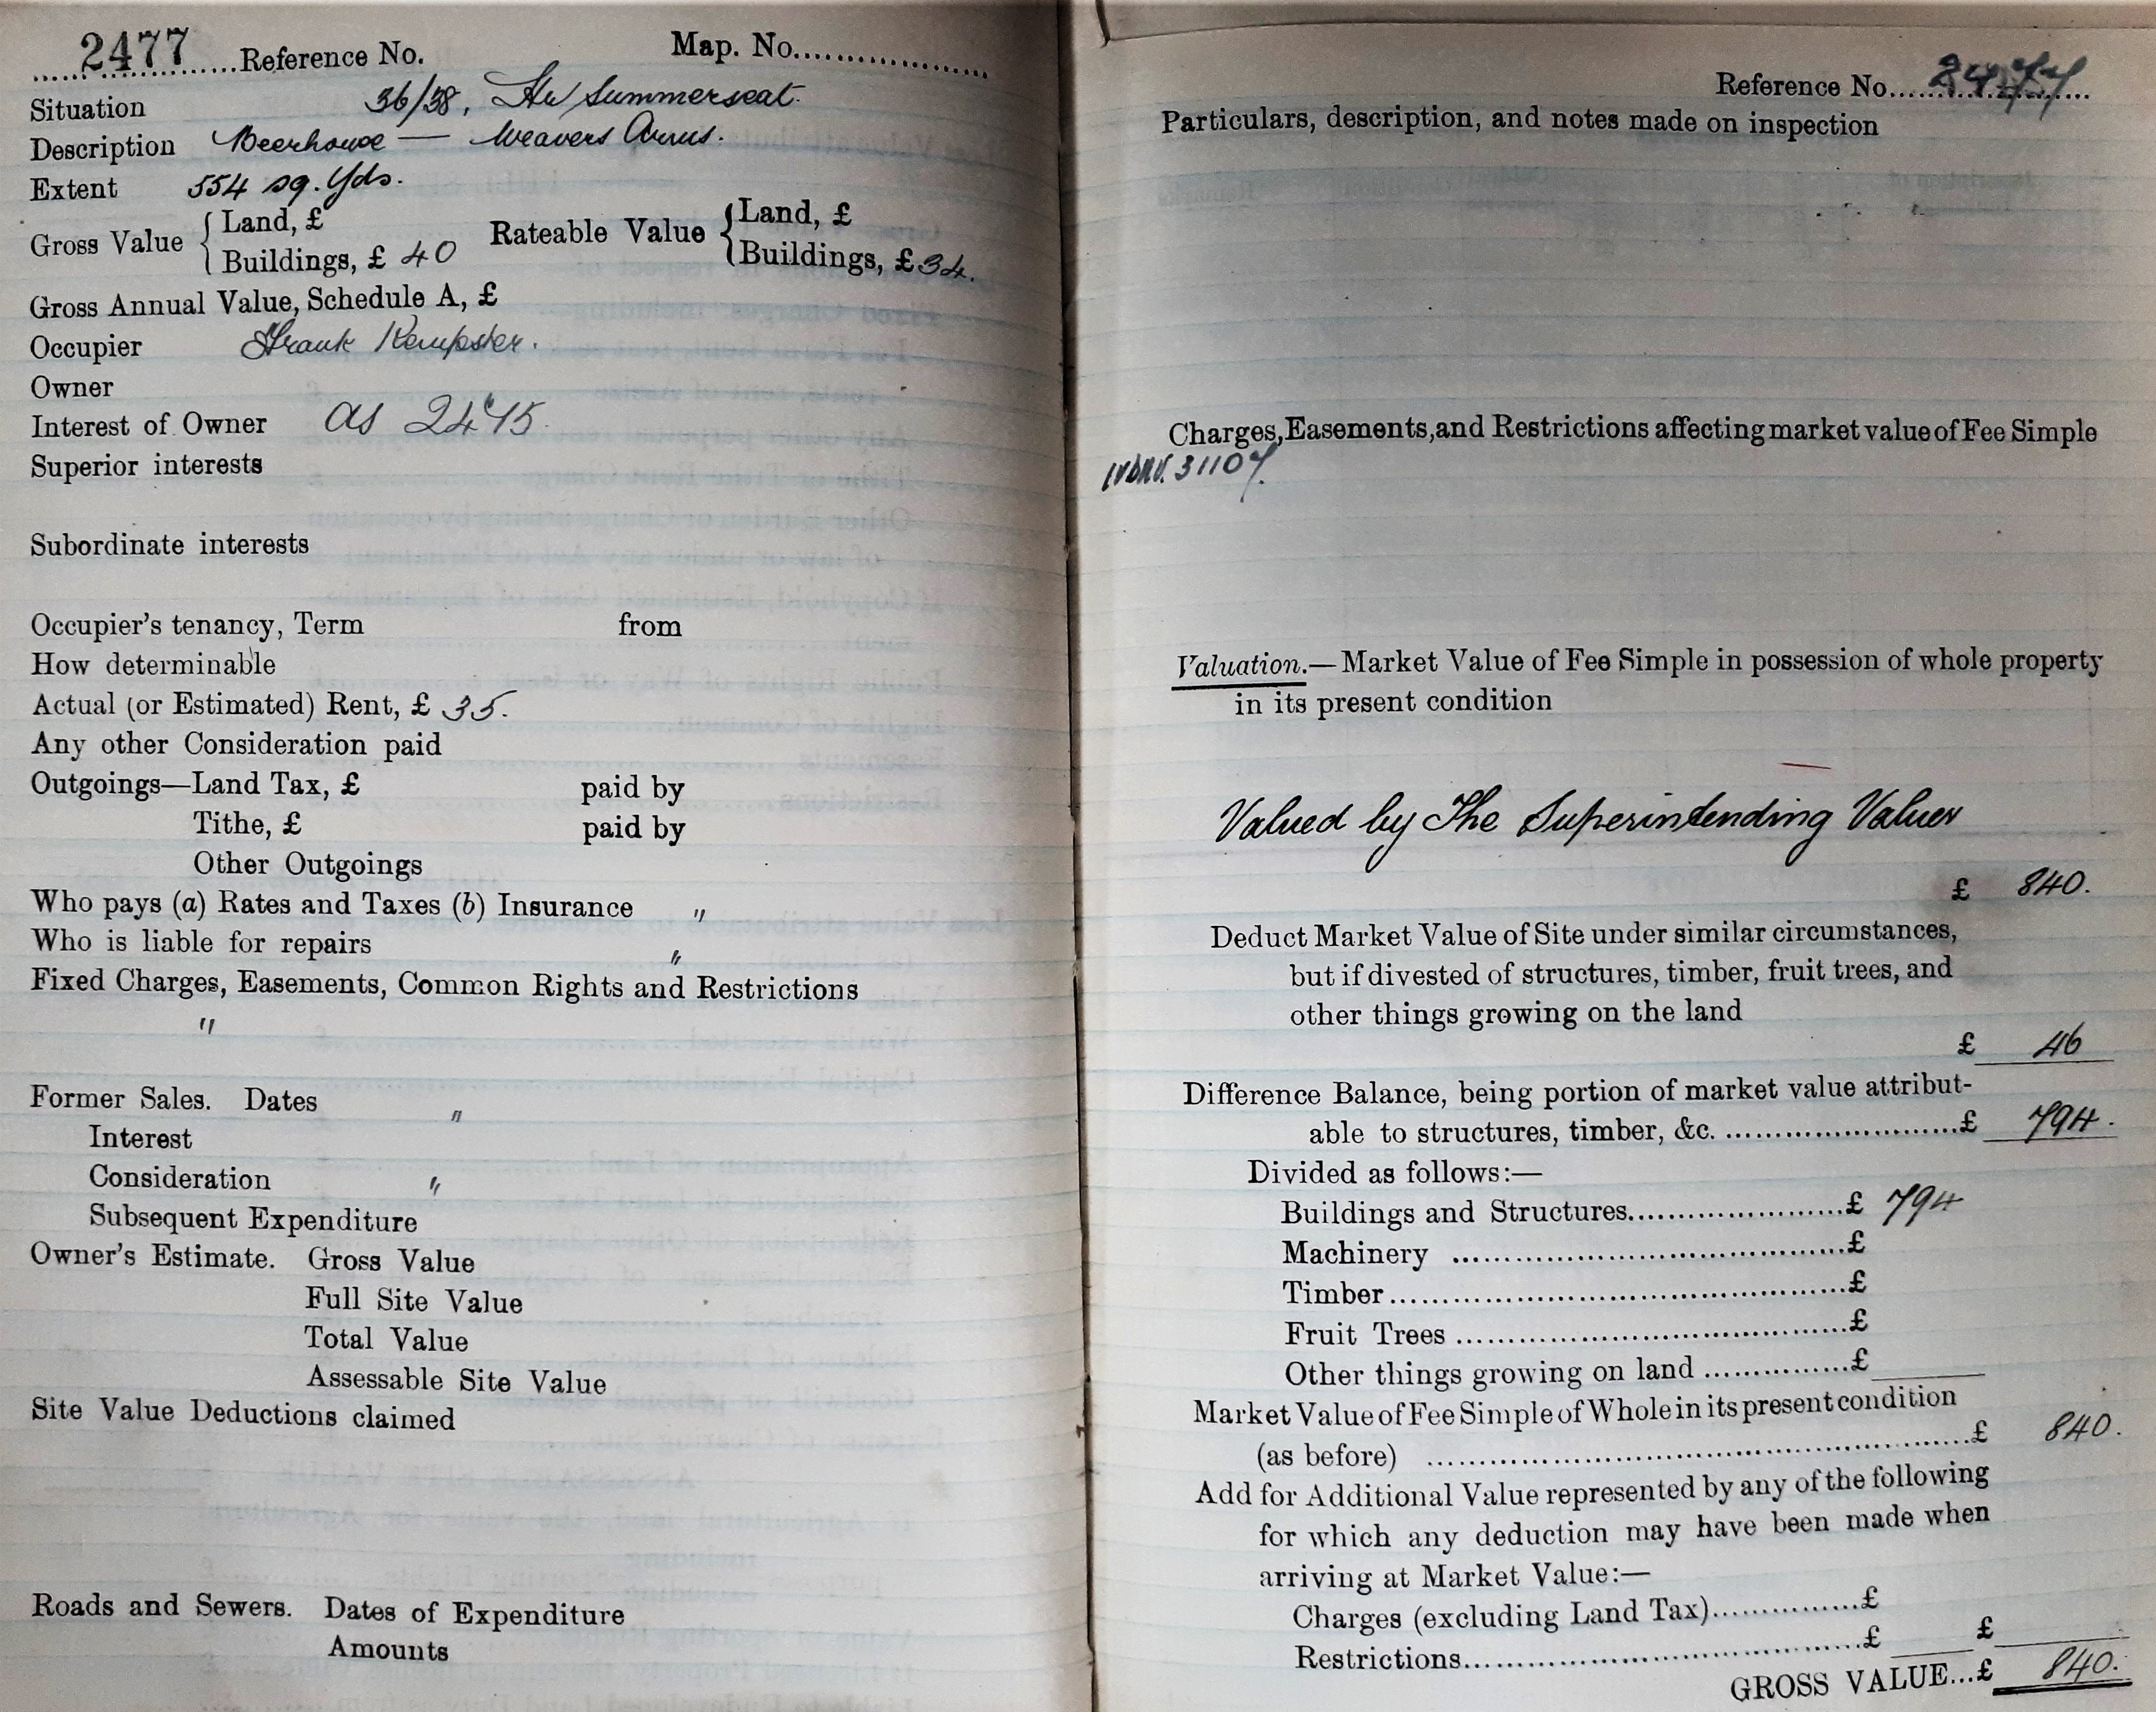 2477 Reference No. Map. No.
Situation 36/38, Hr Summerseat.
Description Beerhouse — Weavers Arms.
Extent 554 sq. Yds.
Gross Value { Land, £
Buildings, £ 40
Rateable Value { Land, £
Buildings, £ 34.
Gross Annual Value, Schedule A, £
Occupier Frank Kempster.
Owner
Interest of Owner as 2475.
Superior interests
Subordinate interests
Occupier's tenancy, Term from
How determinable
Actual (or Estimated) Rent, £ 35.
Any other Consideration paid
Outgoings—Land Tax, £ paid by
Tithe, £ paid by
Other Outgoings
Who pays (a) Rates and Taxes (b) Insurance "
Who is liable for repairs "
Fixed Charges, Easements, Common Rights and Restrictions
"
Former Sales. Dates "
Interest
Consideration "
Subsequent Expenditure
Owner's Estimate. Gross Value
Full Site Value
Total Value
Assessable Site Value
Site Value Deductions claimed
Roads and Sewers. Dates of Expenditure
Amounts
Reference No. 2477
Particulars, description, and notes made on inspection
Charges, Easements, and Restrictions affecting market value of Fee Simple
31107.
Valuation.—Market Value of Fee Simple in possession of whole property
in its present condition
Valued by The Superintending Valuer
£ 840.
Deduct Market Value of Site under similar circumstances,
but if divested of structures, timber, fruit trees, and
other things growing on the land
£ 46
Difference Balance, being portion of market value attribut-
able to structures, timber, &c. £ 794.
Divided as follows:—
Buildings and Structures £ 794
Machinery £
Timber £
Fruit Trees £
Other things growing on land £
Market Value of Fee Simple of Whole in its present condition
(as before) £ 840.
Add for Additional Value represented by any of the following
for which any deduction may have been made when
arriving at Market Value:—
Charges (excluding Land Tax) £
Restrictions £ £
GROSS VALUE...£ 840.